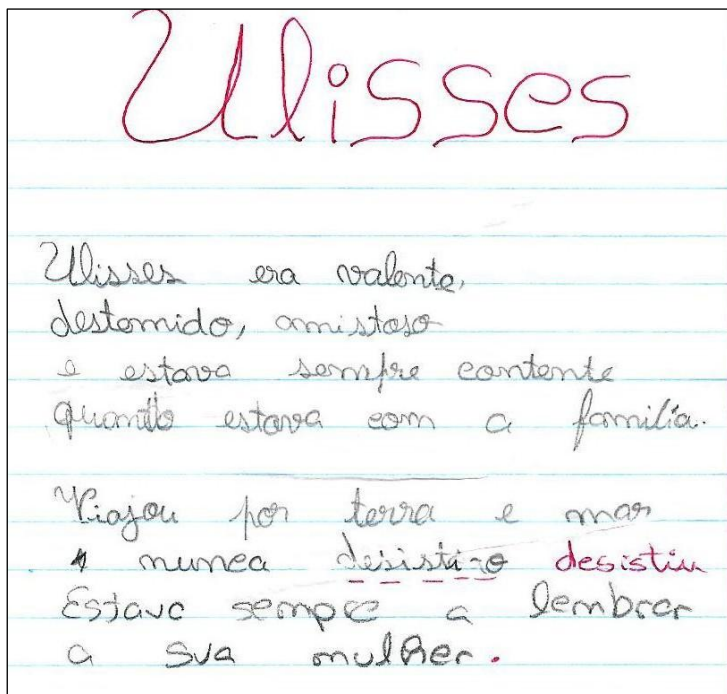 Ulisses
Ulisses era valente,
destemido, amistoso
e estava sempre contente
quando estava com a família.
Viajou por terra e mar
nunca desistio desistiu
Estava sempre a lembrar
a sua mulher.